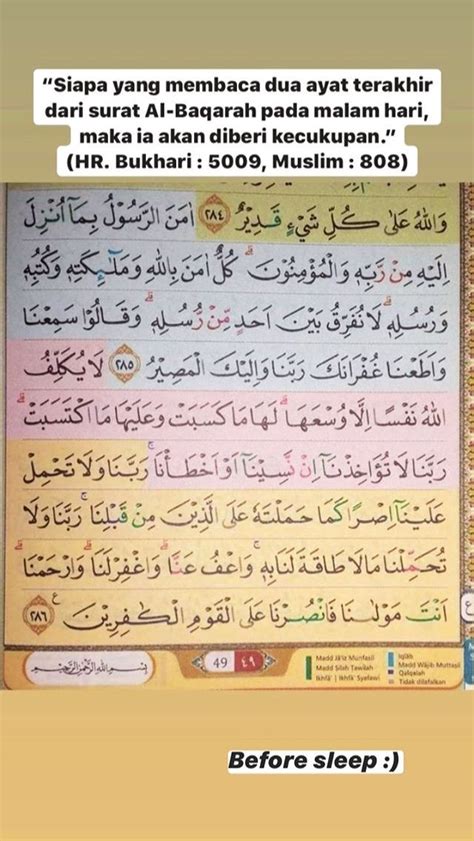 “Siapa yang membaca dua ayat terakhir
dari surat Al-Baqarah pada malam hari,
maka ia akan diberi kecukupan.”
(HR. Bukhari : 5009, Muslim : 808)
وَاللّٰهُ عَلٰى كُلِّ شَيْءٍ قَدِيْرٌ ٢٨٤ اٰمَنَ الرَّسُوْلُ بِمَآ اُنْزِلَ
اِلَيْهِ مِنْ رَّبِّهٖ وَالْمُؤْمِنُوْنَۗ كُلٌّ اٰمَنَ بِاللّٰهِ وَمَلٰۤىِٕكَتِهٖ وَكُتُبِهٖ
وَرُسُلِهٖۗ لَا نُفَرِّقُ بَيْنَ اَحَدٍ مِّنْ رُّسُلِهٖۗ وَقَالُوْا سَمِعْنَا
وَاَطَعْنَا غُفْرَانَكَ رَبَّنَا وَاِلَيْكَ الْمَصِيْرُ ٢٨٥ لَا يُكَلِّفُ
اللّٰهُ نَفْسًا اِلَّا وُسْعَهَاۗ لَهَا مَا كَسَبَتْ وَعَلَيْهَا مَا اكْتَسَبَتْۗ
رَبَّنَا لَا تُؤَاخِذْنَآ اِنْ نَّسِيْنَآ اَوْ اَخْطَأْنَاۚ رَبَّنَا وَلَا تَحْمِلْ
عَلَيْنَآ اِصْرًا كَمَا حَمَلْتَهٗ عَلَى الَّذِيْنَ مِنْ قَبْلِنَاۚ رَبَّنَا وَلَا
تُحَمِّلْنَا مَا لَا طَاقَةَ لَنَا بِهٖۚ وَاعْفُ عَنَّاۗ وَاغْفِرْ لَنَاۗ وَارْحَمْنَاۗ
اَنْتَ مَوْلٰىنَا فَانْصُرْنَا عَلَى الْقَوْمِ الْكٰفِرِيْنَ ࣖ ٢٨٦
بِسْمِ اللّٰهِ الرَّحْمٰنِ الرَّحِيْمِ
49 ٤٩
Madd Jā'iz Munfaṣil
Madd Ṣilah Ṭawīlah
Ikhfā' | Ikhfā' Syafawī
Iqlāb
Madd Wājib Muttaṣil
Qalqalah
Tidak dilafalkan
Before sleep :)